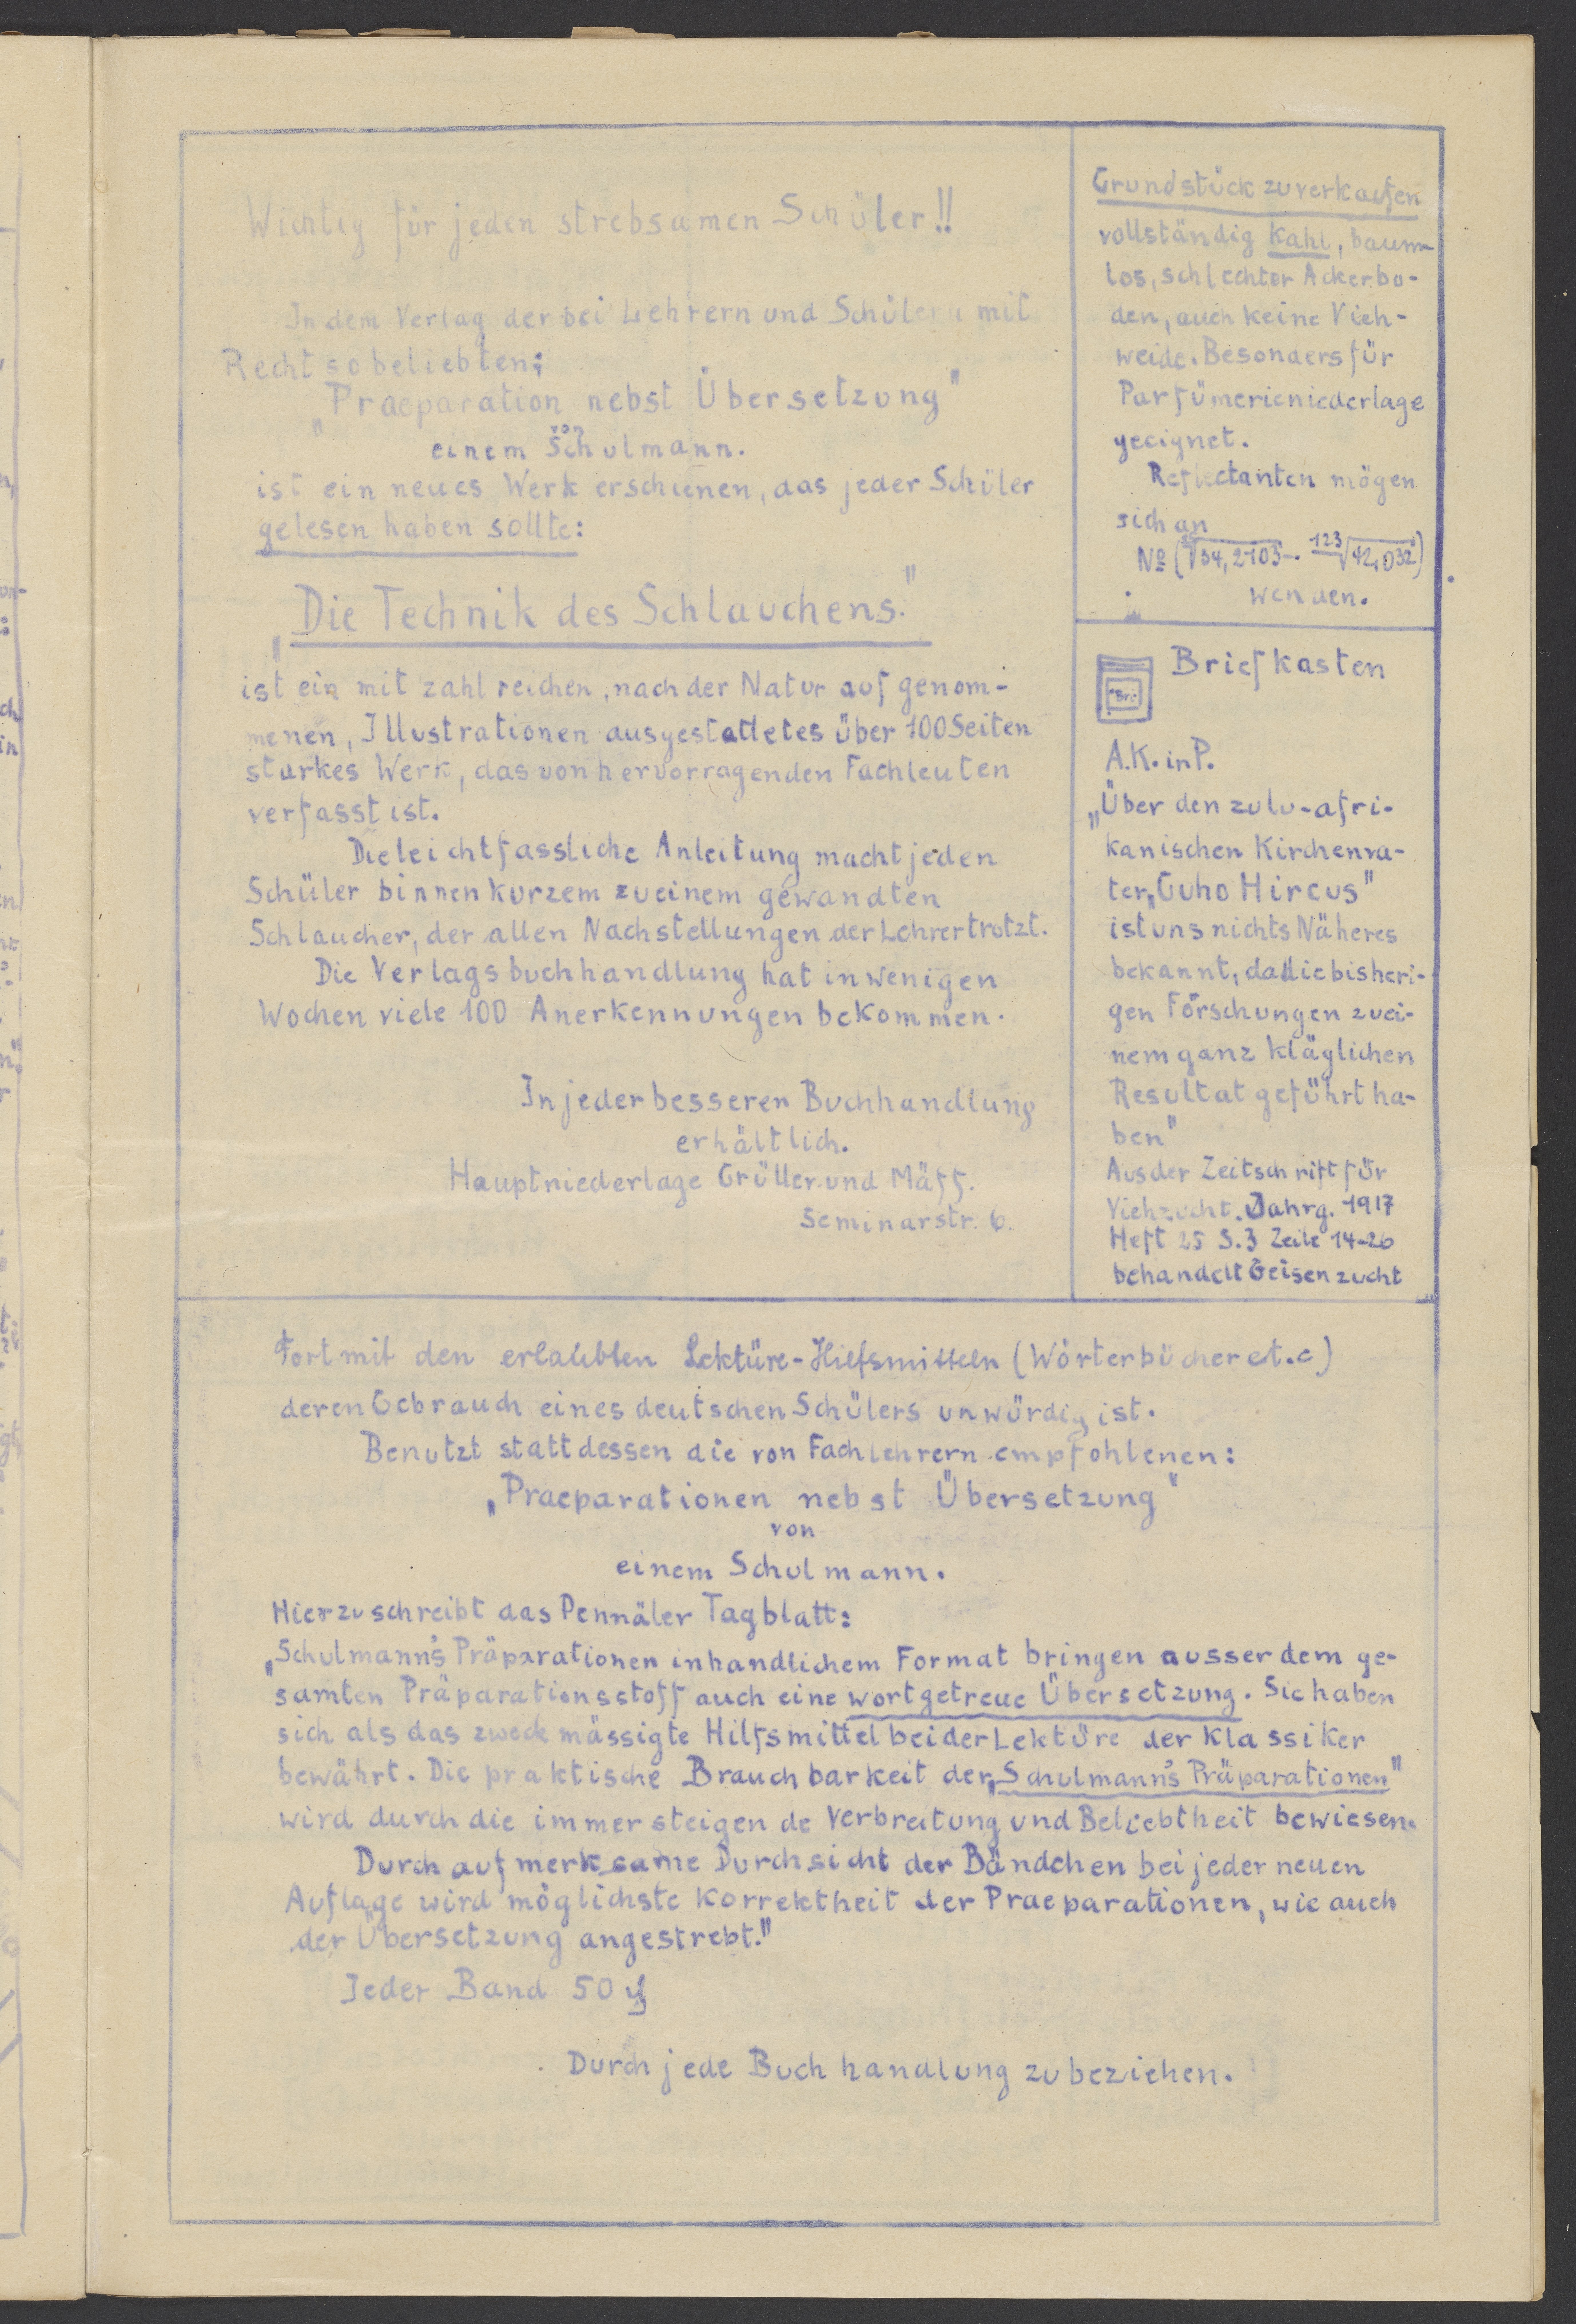 Wichtig für jeden strebsamen Schüler!!
In dem Verlag der bei Lehrern und Schülern mit
Recht so beliebten;
„Praeparation nebst Übersetzung"
von
einem Schulmann.
ist ein neues Werk erschienen, das jeder Schüler
gelesen haben sollte:
„Die Technik des Schlauchens."
ist ein mit zahlreichen, nach der Natur aufgenom-
menen, Illustrationen ausgestattetes über 100 Seiten
starkes Werk, das von hervorragenden Fachleuten
verfasst ist.
Die leichtfassliche Anleitung macht jeden
Schüler binnen kurzem zu einem gewandten
Schlaucher, der allen Nachstellungen der Lehrer trotzt.
Die Verlagsbuchhandlung hat in wenigen
Wochen viele 100 Anerkennungen bekommen.
In jeder besseren Buchhandlung
erhältlich.
Hauptniederlage Grüller und Mäff.
Seminarstr. 6.
Grundstück zu verkaufen
vollständig kahl, baum-
los, schlechter Ackerbo-
den, auch keine Vieh-
weide. Besonders für
Parfümerieniederlage
geeignet.
Reflectanten mögen
sich an
№ (√34,2103 - 123√42,032)
wenden.
Briefkasten
A.K. in P.
„Über den zulu-afri-
kanischen Kirchenva-
ter „Guho Hircus"
ist uns nichts Näheres
bekannt, da die bisheri-
gen Forschungen zu ei-
nem ganz kläglichen
Resultat geführt ha-
ben"
Aus der Zeitschrift für
Viehzucht. Jahrg. 1917
Heft 25 S. 3 Zeile 14-26
behandelt Geisenzucht
Fort mit den erlaubten Lektüre-Hilfsmitteln (Wörterbücher et.c)
deren Gebrauch eines deutschen Schülers unwürdig ist.
Benutzt statt dessen die von Fachlehrern empfohlenen:
„Praeparationen nebst Übersetzung"
von
einem Schulmann.
Hierzu schreibt das Pennäler Tagblatt:
„Schulmann's Präparationen in handlichem Format bringen ausser dem ge-
samten Präparationsstoff auch eine wortgetreue Übersetzung. Sie haben
sich als das zweckmässigte Hilfsmittel bei der Lektüre der Klassiker
bewährt. Die praktische Brauchbarkeit der „Schulmann's Präparationen"
wird durch die immer steigende Verbreitung und Beliebtheit bewiesen.
Durch aufmerksame Durchsicht der Bändchen bei jeder neuen
Auflage wird möglichste Korrektheit der Praeparationen, wie auch
der Übersetzung angestrebt."
Jeder Band 50 ₰
Durch jede Buchhandlung zu beziehen.